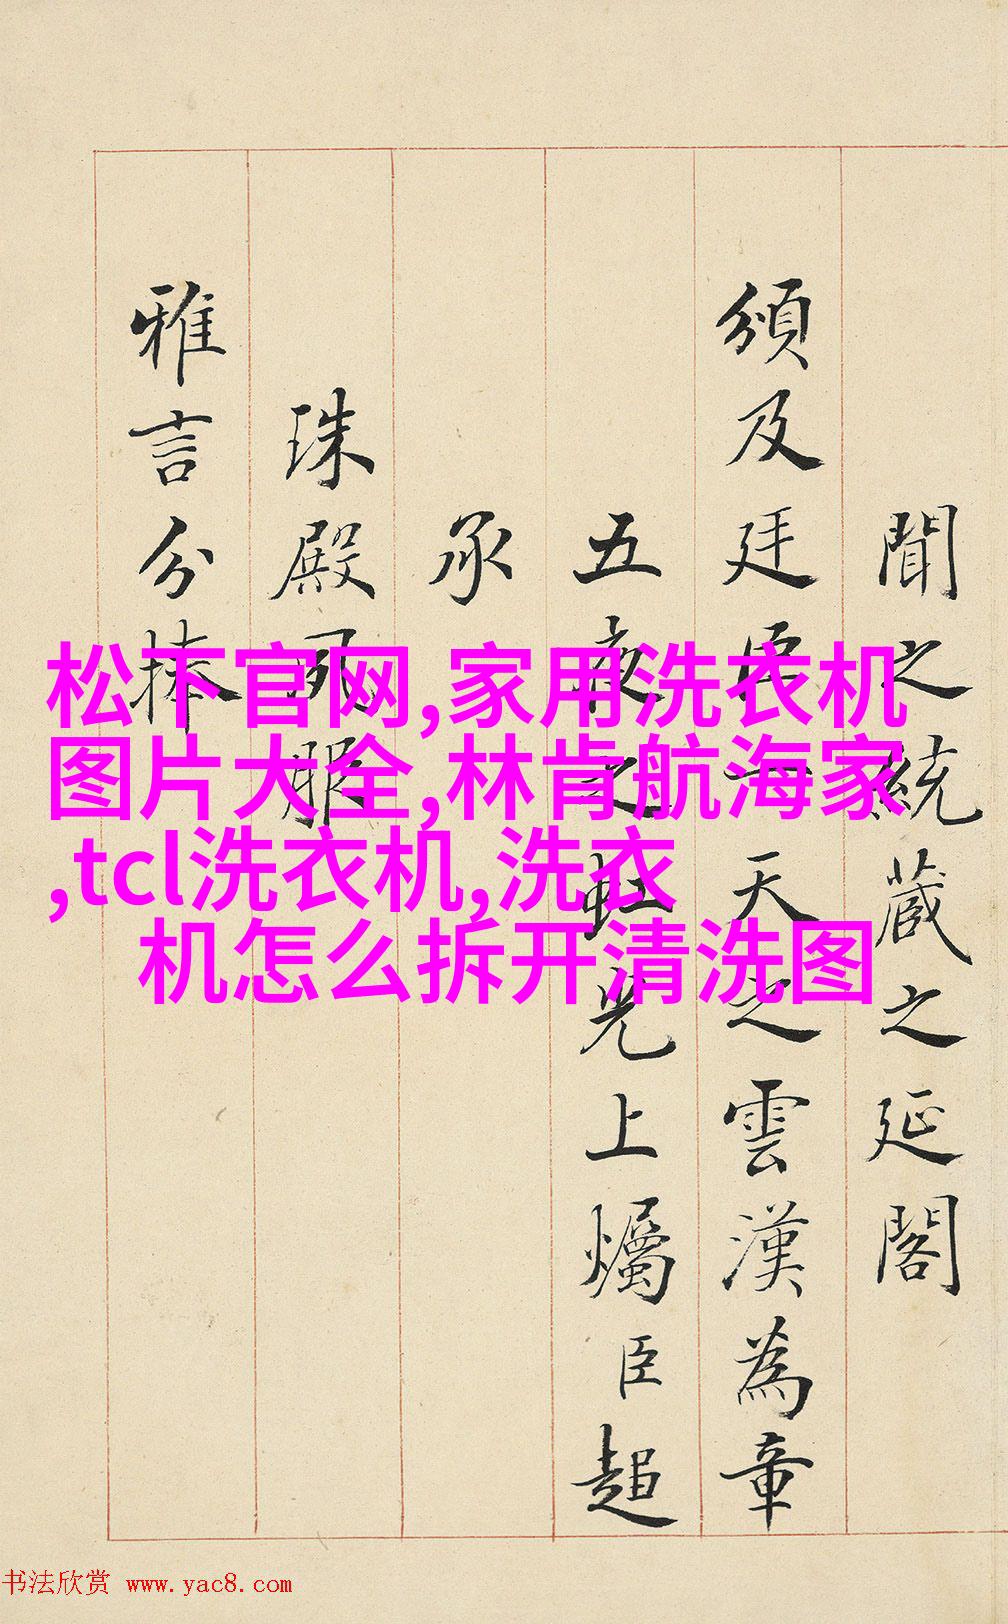 聞之統蔵之延閣
頒及廷臣一天之雲漢為章
五夜之虹光上爥臣超
承
珠殿夙服
雅言分捧
松下官网,家用洗衣机
图片大全,林肯航海家
,tcl洗衣机,洗衣
机怎么拆开清洗图
书法欣赏 www.yac8.com